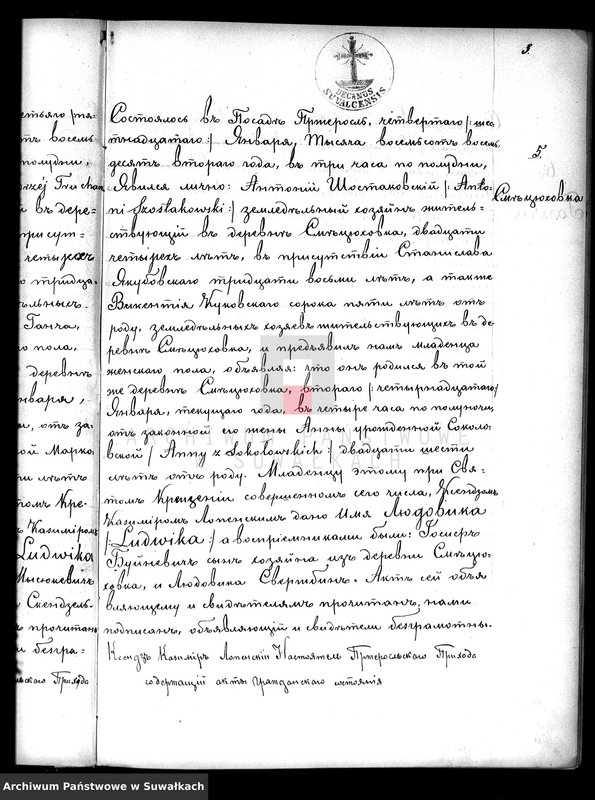 3.
DECANUS
SUVALCENSIS
Состоялось въ Посадѣ Пржеросль, четвертаго /: шес
тнадцатаго :/ Января, Тысяча восемьсотъ восемь
десятъ втораго года, въ три часа по полудни,
Явился лично: Антоній Шостаковскій /: Anto-
ni Szostakowski :/ земледѣльный хозяинъ житель-
ствующій въ деревнѣ Смѣцюховка, двадцати
четырехъ лѣтъ, въ присутствіи Станислава
Якубовскаго тридцати восьми лѣтъ, а также
Викентія Жуковскаго сорока пяти лѣтъ отъ
роду, земледѣльныхъ хозяевъ жительствующихъ въ де-
ревнѣ Смѣцюховка, и предъявилъ намъ младенца
женскаго пола, объявляя: что онъ родился въ той
же деревнѣ Смѣцюховка, втораго /: четырнадцатаго /
Января, текущаго года, въ четыре часа по полуночи,
отъ законной его жены Анны урожденной Соколо-
вской / Anny z Sokołowskich :/ двадцати шести
лѣтъ отъ роду. Младенцу этому при Свя-
томъ Крещеніи совершенномъ сего числа, Ксендзомъ
Казиміромъ Лопенскимъ дано Имя Людовика
/: Ludwika :/ а воспріемниками были: Іосифъ
Буйневичъ сынъ хозяина изъ деревни Смѣцю-
ховка, и Людовика Свербинъ. Актъ сей объя
вляющему и свидѣтелямъ прочитанъ, нами
подписанъ, объявляющій и свидѣтели безграмотны.
Ксендзъ Казиміръ Лопенскій Настоятель Пржеросльскаго Прихода
содержащій акты Гражданскаго состоянія
5.
Смѣцюховка
восемь
полудни,
въ дере-
четырехъ
Ганча,
пола,
деревнѣ
отъ за-
лѣтъ
Казиміромъ
Ludwika
прочитано
безгра-
Прихода
ARCHIWUM PAŃSTWOWE
SUWAŁKACH
Archiwum Państwowe w Suwałkach